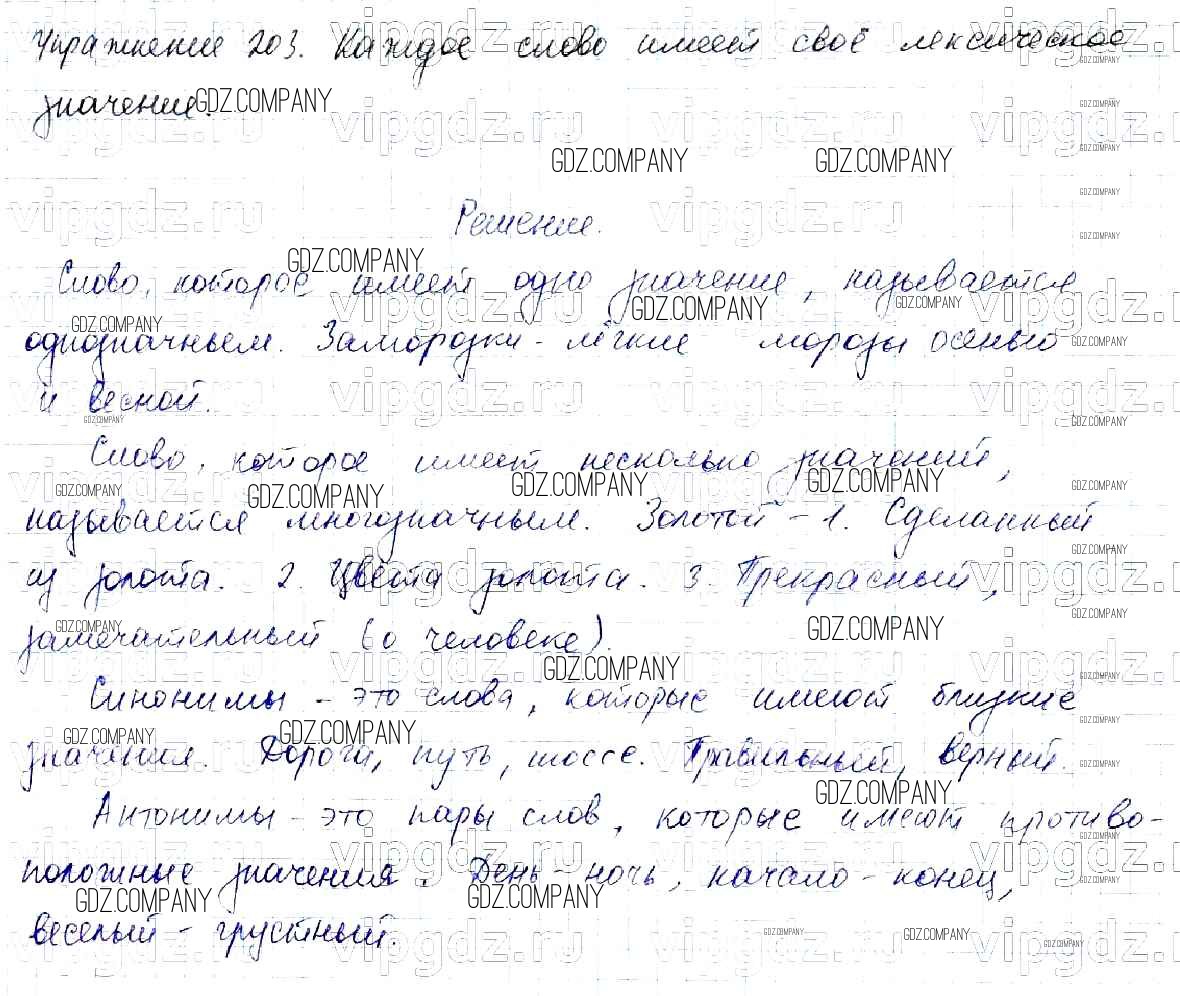 Упражнение 203. Каждое слово имеет своё лексическое
значение.
Решение.
Слово, которое имеет одно значение, называется
однозначным. Заморозки - лёгкие морозы осенью
и весной.
Слово, которое имеет несколько значений,
называется многозначным. Золотой - 1. Сделанный
из золота. 2. Цвета золота. 3. Прекрасный,
замечательный (о человеке).
Синонимы - это слова, которые имеют близкие
значения. Дорога, путь, шоссе. Правильный, верный.
Антонимы - это пары слов, которые имеют противо-
положные значения. День - ночь, начало - конец,
веселый - грустный.